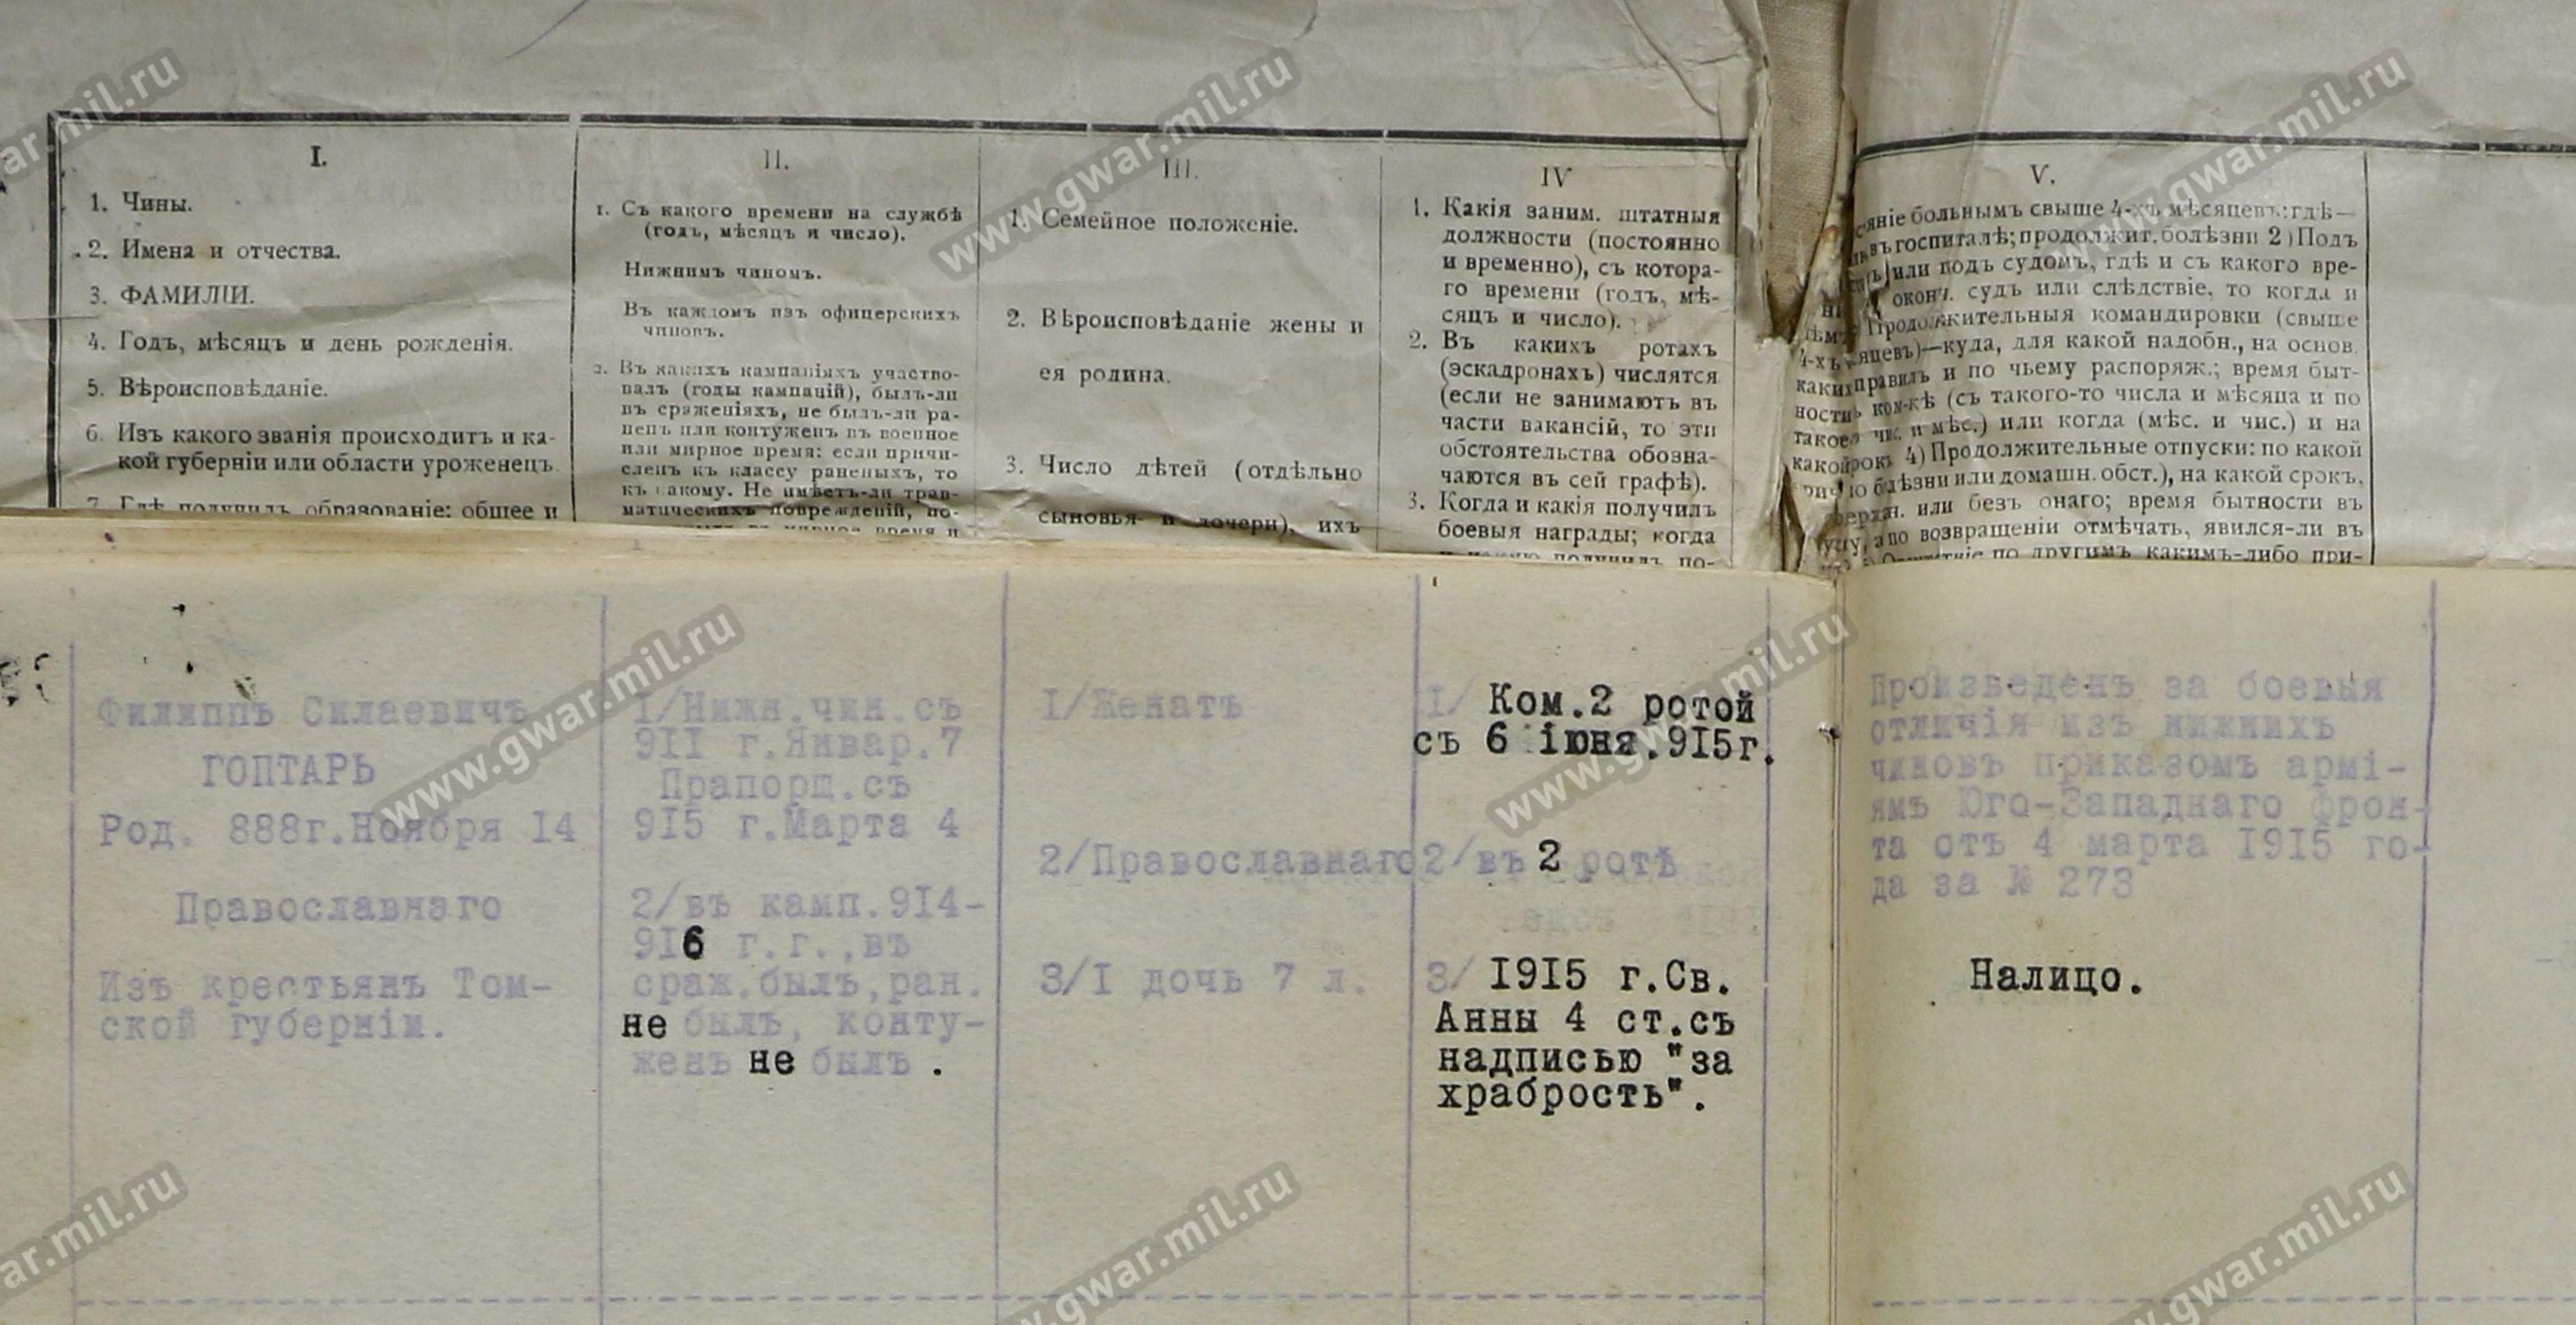 I.
1. Чины.
2. Имена и отчества.
3. ФАМИЛІИ.
4. Годъ, мѣсяцъ и день рожденія.
5. Вѣроисповѣданіе.
6. Изъ какого званія происходитъ и ка-
кой губерніи или области уроженецъ.
7. Гдѣ получилъ образованіе: общее и
II.
1. Съ какого времени на службѣ
(годъ, мѣсяцъ и число).
Нижнимъ чиномъ.
Въ каждомъ изъ офицерскихъ
чиновъ.
2. Въ какихъ кампаніяхъ участво-
валъ (годы кампаній), былъ-ли
въ сраженіяхъ, не былъ-ли ра-
ненъ или контуженъ въ военное
или мирное время: если причи-
сленъ къ классу раненыхъ, то
къ какому. Не имѣетъ-ли трав-
матическихъ поврежденій, по-
въ мирное время и
III.
1. Семейное положеніе.
2. Вѣроисповѣданіе жены и
ея родина.
3. Число дѣтей (отдѣльно
сыновья и дочери), ихъ
IV
1. Какія заним. штатныя
должности (постоянно
и временно), съ котора-
го времени (годъ, мѣ-
сяцъ и число).
2. Въ какихъ ротахъ
(эскадронахъ) числятся
(если не занимаютъ въ
части вакансій, то эти
обстоятельства обозна-
чаются въ сей графѣ).
3. Когда и какія получилъ
боевыя награды; когда
получилъ по-
V.
больнымъ свыше 4-хъ мѣсяцевъ: гдѣ—
въ госпиталѣ; продолжит. болѣзни 2) Подъ
или подъ судомъ, гдѣ и съ какого вре-
оконч. судъ или слѣдствіе, то когда и
Продолжительныя командировки (свыше
4-хъ —куда, для какой надобн., на основ.
правилъ и по чьему распоряж.; время быт-
ности (съ такого-то числа и мѣсяца и по
такое и мѣс.) или когда (мѣс. и чис.) и на
какой 4) Продолжительные отпуски: по какой
или домашн. обст.), на какой срокъ,
или безъ онаго; время бытности въ
по возвращеніи отмѣчать, явился-ли въ
по другимъ какимъ-либо при-
Филиппъ Силаевичъ
ГОПТАРЬ
Род. 888г.Ноября I4
Православнаго
Изъ крестьянъ Том-
ской губерніи.
I/Нижн.чин.съ
9II г.Январ.7
Прапорщ.съ
9I5 г.Марта 4
2/въ камп.9I4-
9I6 г.г.,въ
сраж.былъ,ран.
не былъ, конту-
женъ не былъ .
I/Женатъ
2/Православнаго
3/I дочь 7 л.
I/ Ком.2 ротой
съ 6 іюня.9I5г.
2/въ 2 ротѣ
3/ I9I5 г.Св.
Анны 4 ст.съ
надписью "за
храбрость".
Произведенъ за боевыя
отличія изъ нижнихъ
чиновъ приказомъ армі-
ямъ Юго-Западнаго фрон-
та отъ 4 марта I9I5 го-
да за № 273
Налицо.
www.gwar.mil.ru